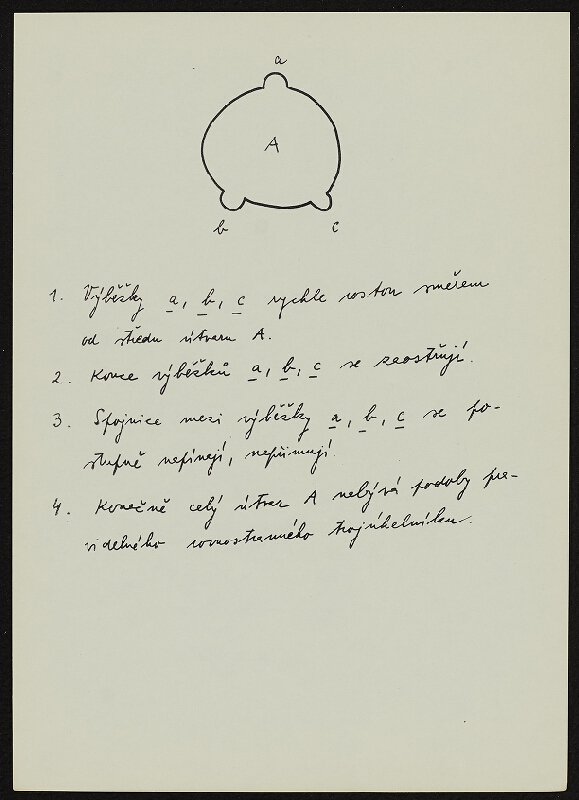 a
A
b c
1. Výběžky a, b, c rychle rostou směrem
od středu útvaru A.
2. Konce výběžků a, b, c se zaostřují.
3. Spojnice mezi výběžky a, b, c se po-
stupně napínají, napřimují.
4. Konečně celý útvar A nabývá podoby pra-
videlného rovnostranného trojúhelníku.